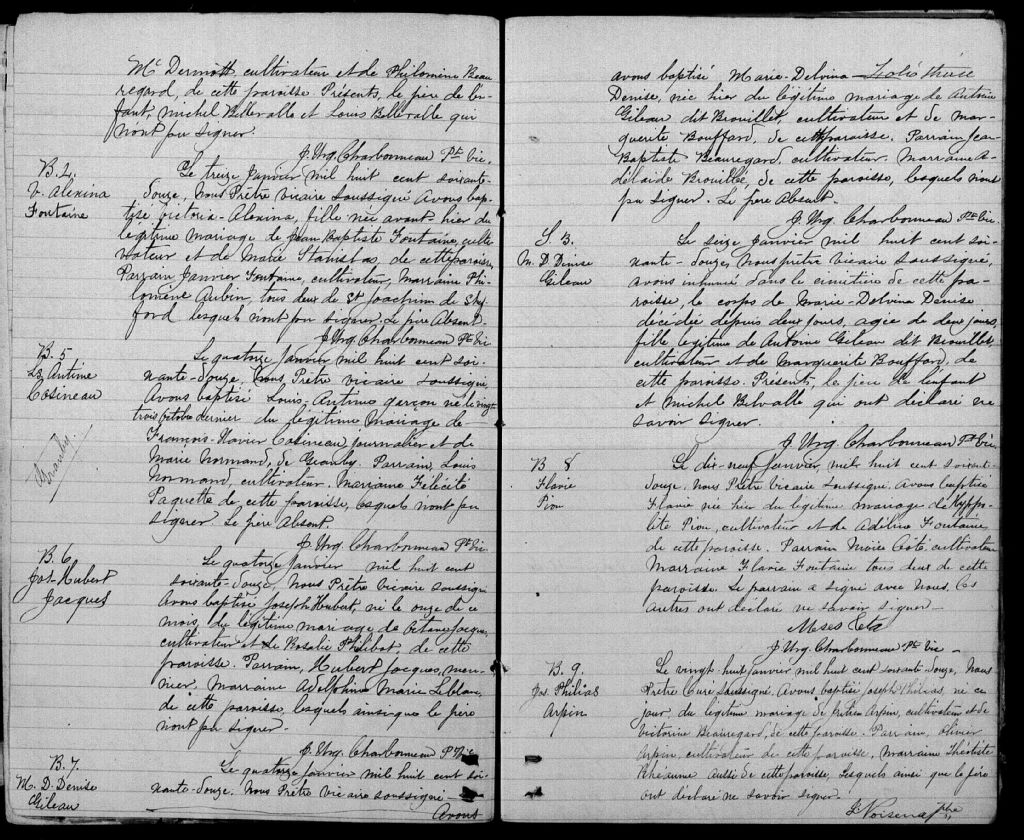 Mc Dermott cultivateur et de Philomène Beau
regard, de cette paroisse. Présents, le père de l'en-
fant, Michel Bellevalle et Louis Bellevalle qui
n'ont pu signer.
J. Urg. Charbonneau Ptre Vic.
B. 4.
V. Alexina
Fontaine
Le treize Janvier mil huit cent soixante-
douze, Nous Prêtre vicaire soussigné avons bap-
tisé Victoria-Alexina, fille née avant hier du
légitime mariage de Jean Baptiste Fontaine, culti-
vateur et de Marie Stanislas, de cette paroisse,
Parrain Janvier Fontaine, cultivateur, Marraine Phi-
lomène Aubin, tous deux de St Joachim de Shef
ford lesquels n'ont pu signer. Le père Absent.
J. Urg. Charbonneau Ptre Vic
B. 5
Ls Antime
Cosineau
Granby
Le quatorze Janvier mil huit cent soi-
xante-douze, Nous, Prêtre vicaire soussigné,
Avons baptisé Louis-Antime garçon né le vingt
trois octobre dernier du légitime Mariage de
François-Xavier Cosineau Journalier et de
Marie Normand, de Granby. Parrain, Louis
Normand, cultivateur. Marraine Félécité
Paquette de cette paroisse, lesquels n'ont pu
signer. Le père Absent.
J. Urg. Charbonneau Ptre Vic
B. 6.
Jos-Hubert
Jacques
Le quatorze Janvier mil huit cent
soixante-douze, Nous Prêtre vicaire soussigné
Avons baptisé Joseph Hubert, né le onze de ce
mois, du légitime mariage de Octave Jacques,
cultivateur et de Rosalie Philibot, de cette
paroisse. Parrain, Hubert Jacques, meu-
nier, Marraine Adelphine Marie Leblanc,
de cette paroisse, lesquels ainsi que le père
n'ont pu signer.
J. Urg. Charbonneau Ptre Vic
B. 7.
M. D. Denise
Gileau
Le quatorze Janvier mil huit cent soi-
xante-douze. Nous Prêtre vicaire soussigné
Avons
avons baptisé Marie-Delvina Folio treize
Denise, née hier du légitime mariage de Antoine
Gileau dit Brouillet, cultivateur et de Mar-
guerite Bouffard, de cette paroisse. Parrain Jean
Baptiste Beauregard, cultivateur. Marraine A-
délaide Brouille, de cette paroisse, lesquels n'ont
pu signer. Le père Absent.
J. Urg. Charbonneau Ptre Vic
S. 3.
M. D. Denise
Gileau
Le seize Janvier mil huit cent soi-
xante-douze, Nous prêtre vicaire soussigné,
avons inhumé dans le cimetière de cette pa-
roisse, le corps de Marie-Delvina Denise
décédée depuis deux jours, agée de deux jours,
fille légitime de Antoine Gileau dit Brouillet,
cultivateur et de Marguerite Bouffard, de
cette paroisse. Présents, le père de l'enfant
et Michel Belvalle qui ont déclaré ne
savoir signer.
J. Urg. Charbonneau Ptre Vic.
B 8
Flavie
Pion
Le dix-neuf Janvier, mil huit cent soixante-
douze. Nous Prêtre Vicaire soussigné. Avons baptisé
Flavie née hier du légitime mariage de Hyppo-
lite Pion, cultivateur et de Adéline Fontaine
de cette paroisse. Parrain Moïse Coté, cultivateur
Marraine Flavie Fontaine tous deux de cette
paroisse. Le parrain a signé avec nous. Les
autres ont déclaré ne savoir signer.
Moses Cota
J. Urg. Charbonneau Ptre Vic
B. 9.
Jos. Philias
Arpin
Le vingt huit janvier mil huit cent soixante-douze, Nous
Prêtre Curé soussigné, avons baptisé Joseph Philias, né ce
jour, du légitime mariage de Arpin, cultivateur et de
Victorine Beauregard, de cette paroisse. Parrain, Olivier
Arpin, cultivateur de cette paroisse, marraine Théotiste
Rhéaume aussi de cette paroisse, lesquels ainsi que le père
ont déclaré ne savoir signer.